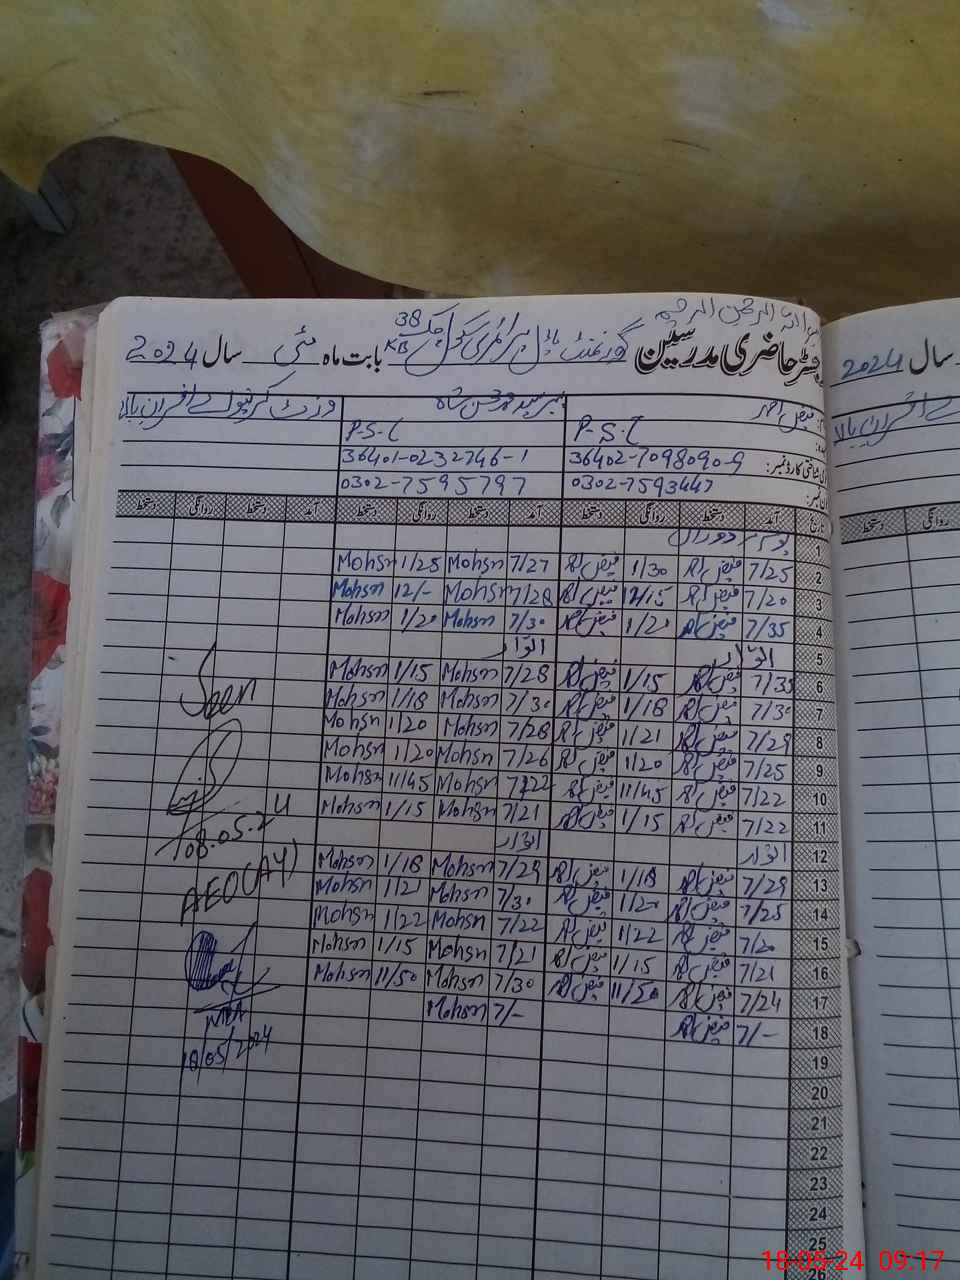 بسم اللہ الرحمن الرحیم
رجسٹر حاضری مدرسین گورنمنٹ ماڈل پرائمری سکول چک 38 KB بابت ماہ مئی سال 2024
سال 2024
فیض احمد
وزٹ کرنیوالے افسران بالا
P.S.T P.S.T
شناختی کارڈ نمبر: 36402-7098090-9 36401-0232746-1
0302-7593447 0302-7595797
تاریخ آمد دستخط روانگی دستخط آمد دستخط روانگی دستخط آمد دستخط روانگی دستخط
روانگی دستخط
1
2 7/25 فیض 1/30 فیض 7/27 Mohsn 1/28 Mohsn
3 7/20 فیض 12/15 فیض 7/28 Mohsn 12/- Mohsn
4 7/35 فیض 1/21 فیض 7/30 Mohsn 1/20 Mohsn
5 اتوار اتوار
6 7/35 فیض 1/15 فیض 7/28 Mohsn 1/15 Mohsn
7 7/30 فیض 1/18 فیض 7/30 Mohsn 1/18 Mohsn
8 7/29 فیض 1/21 فیض 7/28 Mohsn 1/20 Mohsn
9 7/25 فیض 1/20 فیض 7/26 Mohsn 1/20 Mohsn
10 7/22 فیض 11/45 فیض 7/22 Mohsn 11/45 Mohsn
11 7/22 فیض 1/15 فیض 7/21 Mohsn 1/15 Mohsn
12 اتوار اتوار
13 7/29 فیض 1/18 فیض 7/29 Mohsn 1/18 Mohsn
14 7/25 فیض 1/20 فیض 7/31 Mohsn 1/21 Mohsn
15 7/20 فیض 1/22 فیض 7/22 Mohsn 1/22 Mohsn
16 7/21 فیض 1/15 فیض 7/21 Mohsn 1/15 Mohsn
17 7/24 فیض 11/50 فیض 7/30 Mohsn 11/50 Mohsn
18 7/- فیض 7/- Mohsn
19
20
21
22
23
24
25
26
Seen
08.05.24
AEO(AY)
MEA
18/05/2024
18-05-24 09:17